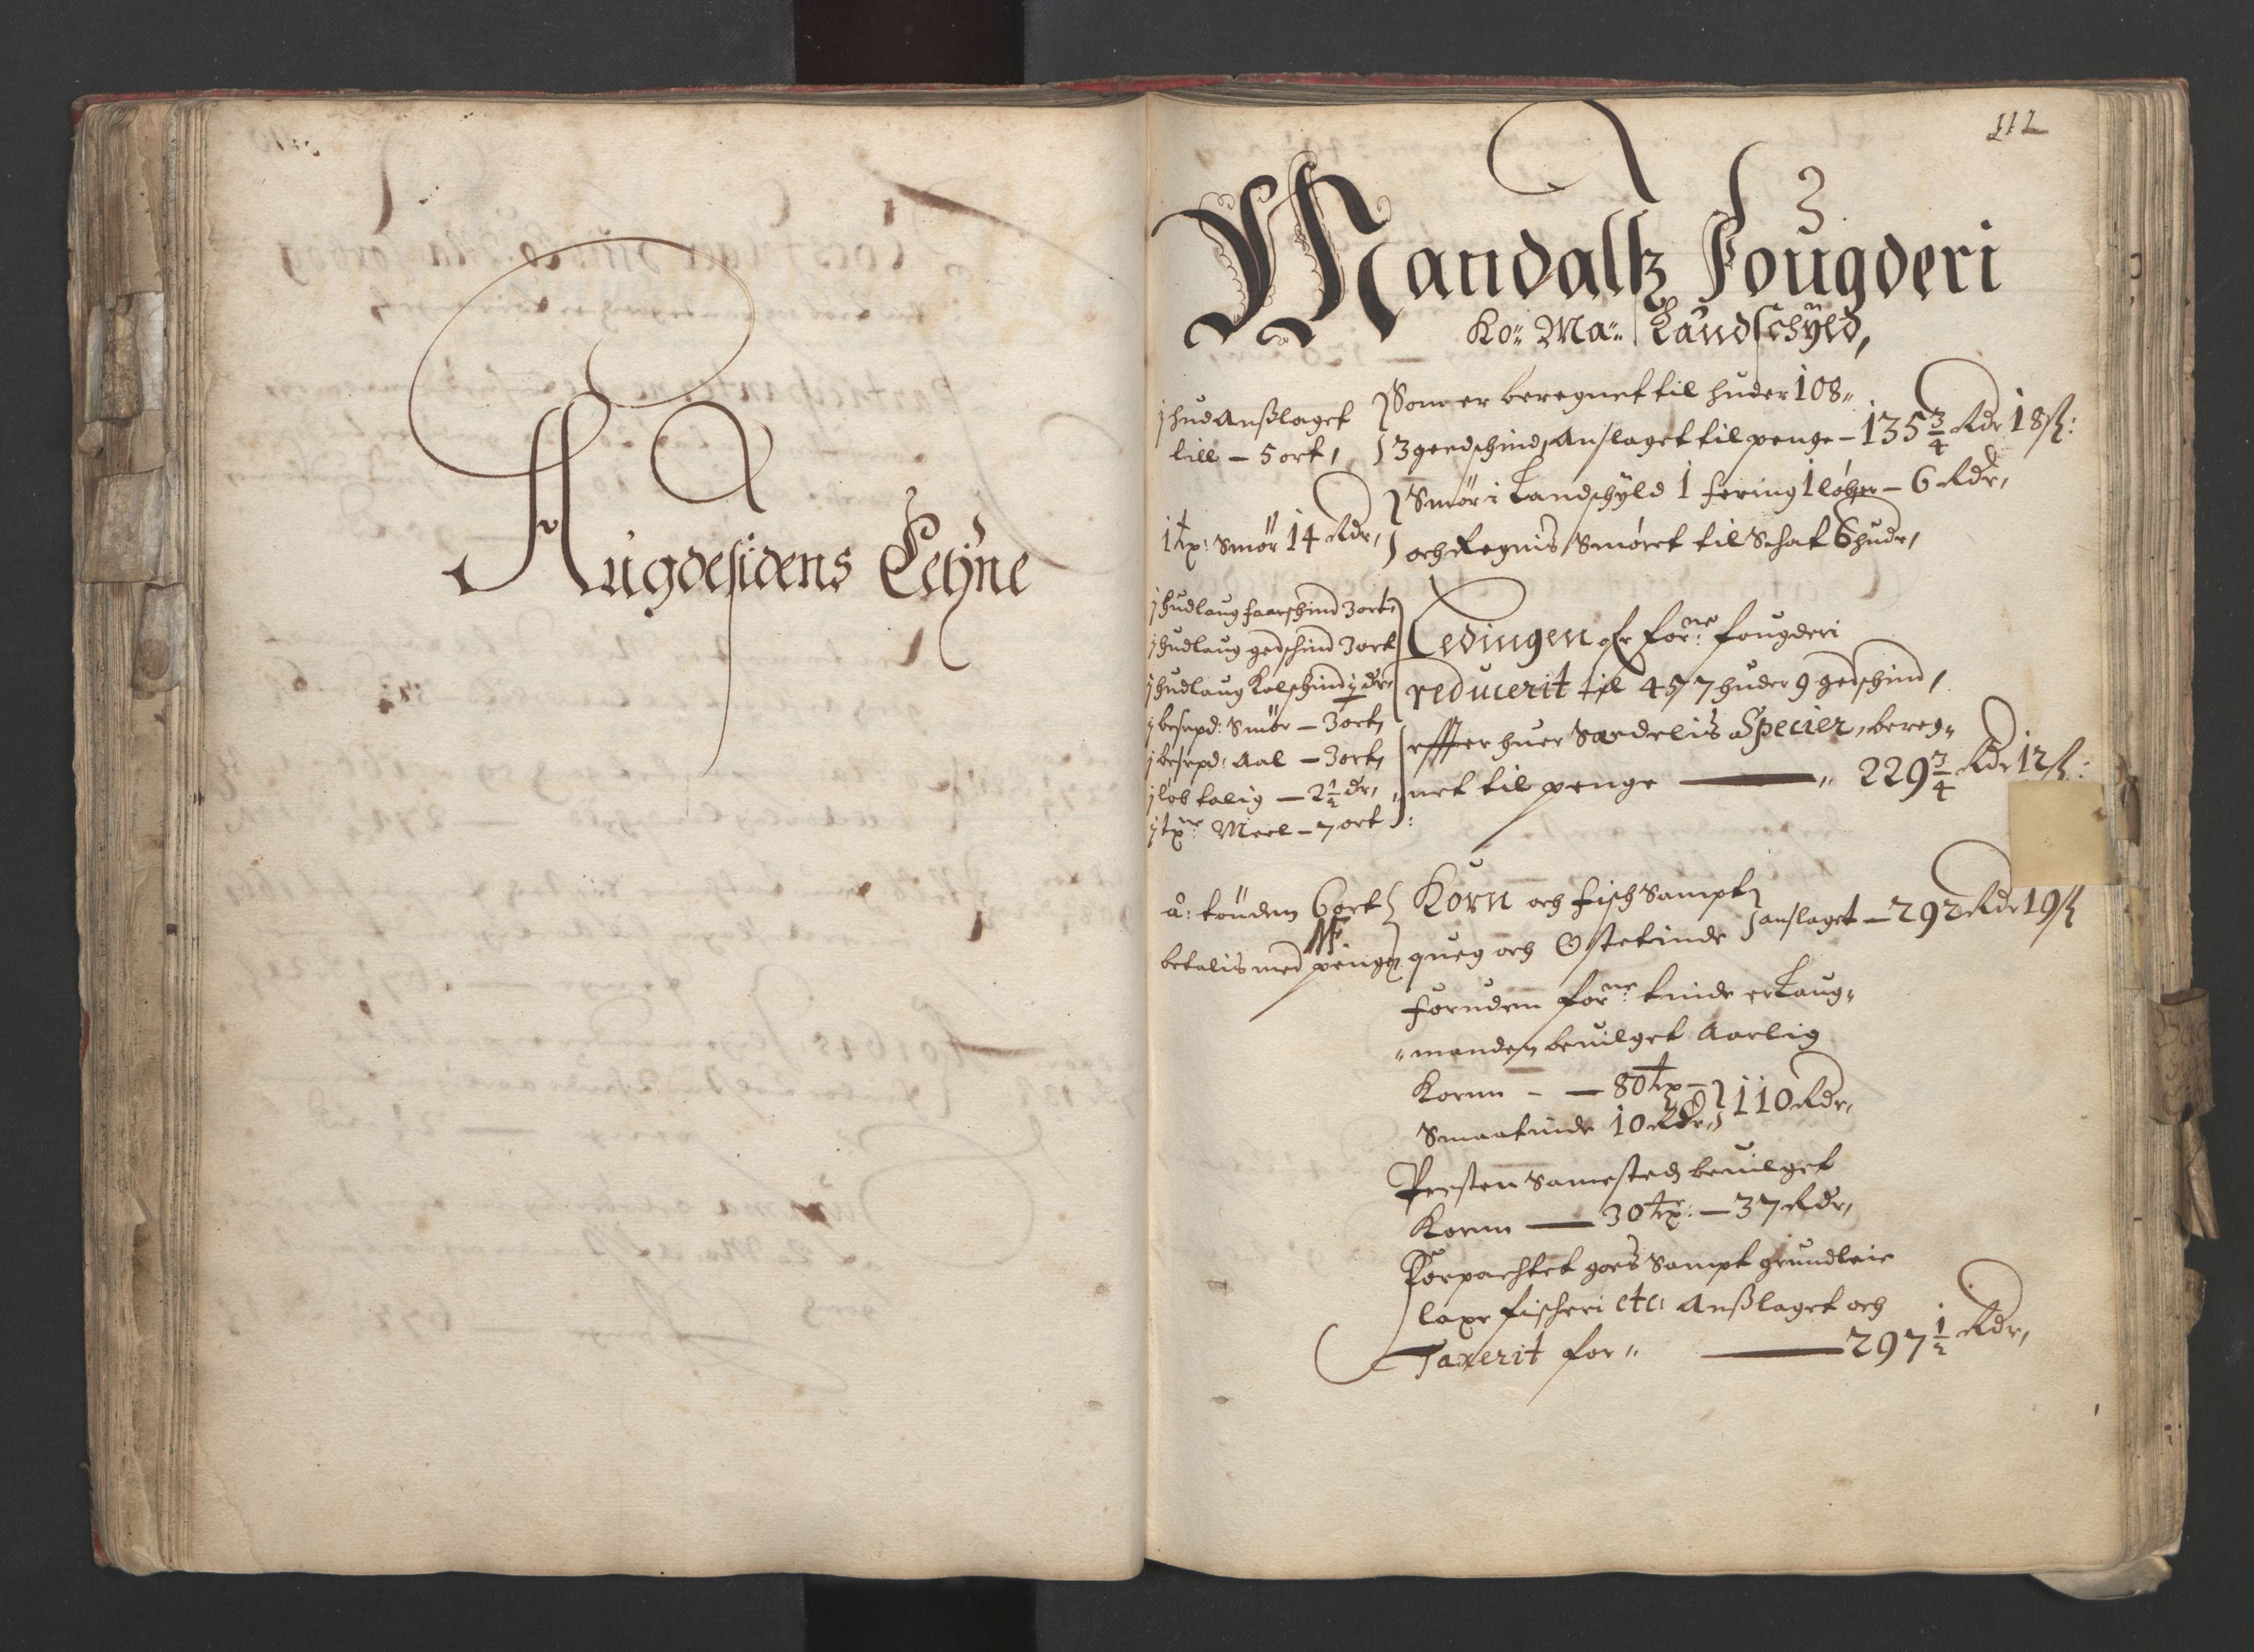 Augdesidens Lehne
112
Mandaltz Fougderi
Ko:: Ma:: Landschÿld,
j hud Anßlaget
till – 5 ort,
Som er beregnet til huder 108::
3 geedschind, Anslaget til penge – 135 3/4 Rdr 18 ß:
1 tp: Smør 14 Rdr,
Smør i Landschÿld 1 fering 1 løber – 6 Rdr,
och Regnis Smøret til Schat 6 hudr,
j hudlaug faarschind 3 ort,
j hudlaug gedschind 3 ort
j hudlaug Kalschind j dr,
j besmpd: Smör – 3 ort,
j besmpd: Aal – 3 ort,
j løb talig – 2 1/2 dr,
j tp Meel – 7 ort
Ledingen af forne: fougderi
reducerit til 457 huder 9 gedschind,
effter huer Særdelis Specier, bereg::
::net til penge —— :: 229 3/4 Rdr 12 ß:
â: tønden 6 ort
betalis med penge
Korn och fisch Sampt
queg och Ostetinde anslaget – 292 Rdr 19 ß
foruden forne: tinde er Laug::
::manden beuilget Aarlig
Kornn – – 80 tp –
Smaatinde 10 Rdr,
110 Rdr,
Presten Samested beuilget
Kornn — 30 tp: – 37 Rdr,
Forpachtet goes Sampt grundleie
laxe fischeri etc: Anßlaget och
Taxerit for:: —— 297 1/2 Rdr,